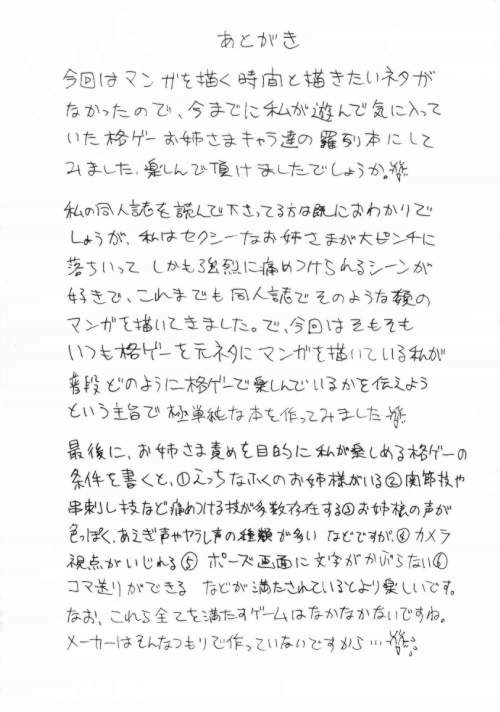 あとがき
今回はマンガを描く時間と描きたいネタが
なかったので、今までに私が遊んで気に入って
いた格ゲーお姉さまキャラ達の羅列本にして
みました。楽しんで頂けましたでしょうか。
私の同人誌を読んで下さってる方は既におわかりで
しょうが、私はセクシーなお姉さまが大ピンチに
落ちいって しかも強烈に痛めつけられるシーンが
好きで、これまでも同人誌でそのような類の
マンガを描いてきました。で、今回はそもそも
いつも格ゲーを元ネタにマンガを描いている私が
普段どのように格ゲーで楽しんでいるかを伝えよう
という主旨で極単純な本を作ってみました
最後に、お姉さま責めを目的に私が楽しめる格ゲーの
条件を書くと、①えっちなふくのお姉様がいる②関節技や
串刺し技など痛めつける技が多数存在する③お姉様の声が
色っぽく、あえぎ声ややられ声の種類が多い などですが、④カメラ
視点がいじれる⑤ ポーズ画面に文字がかぶらない⑥
コマ送りができる などが満たされているとより楽しいです。
なお、これら全てを満たすゲームはなかなかないですね。
メーカーはそんなつもりで作っていないですから…